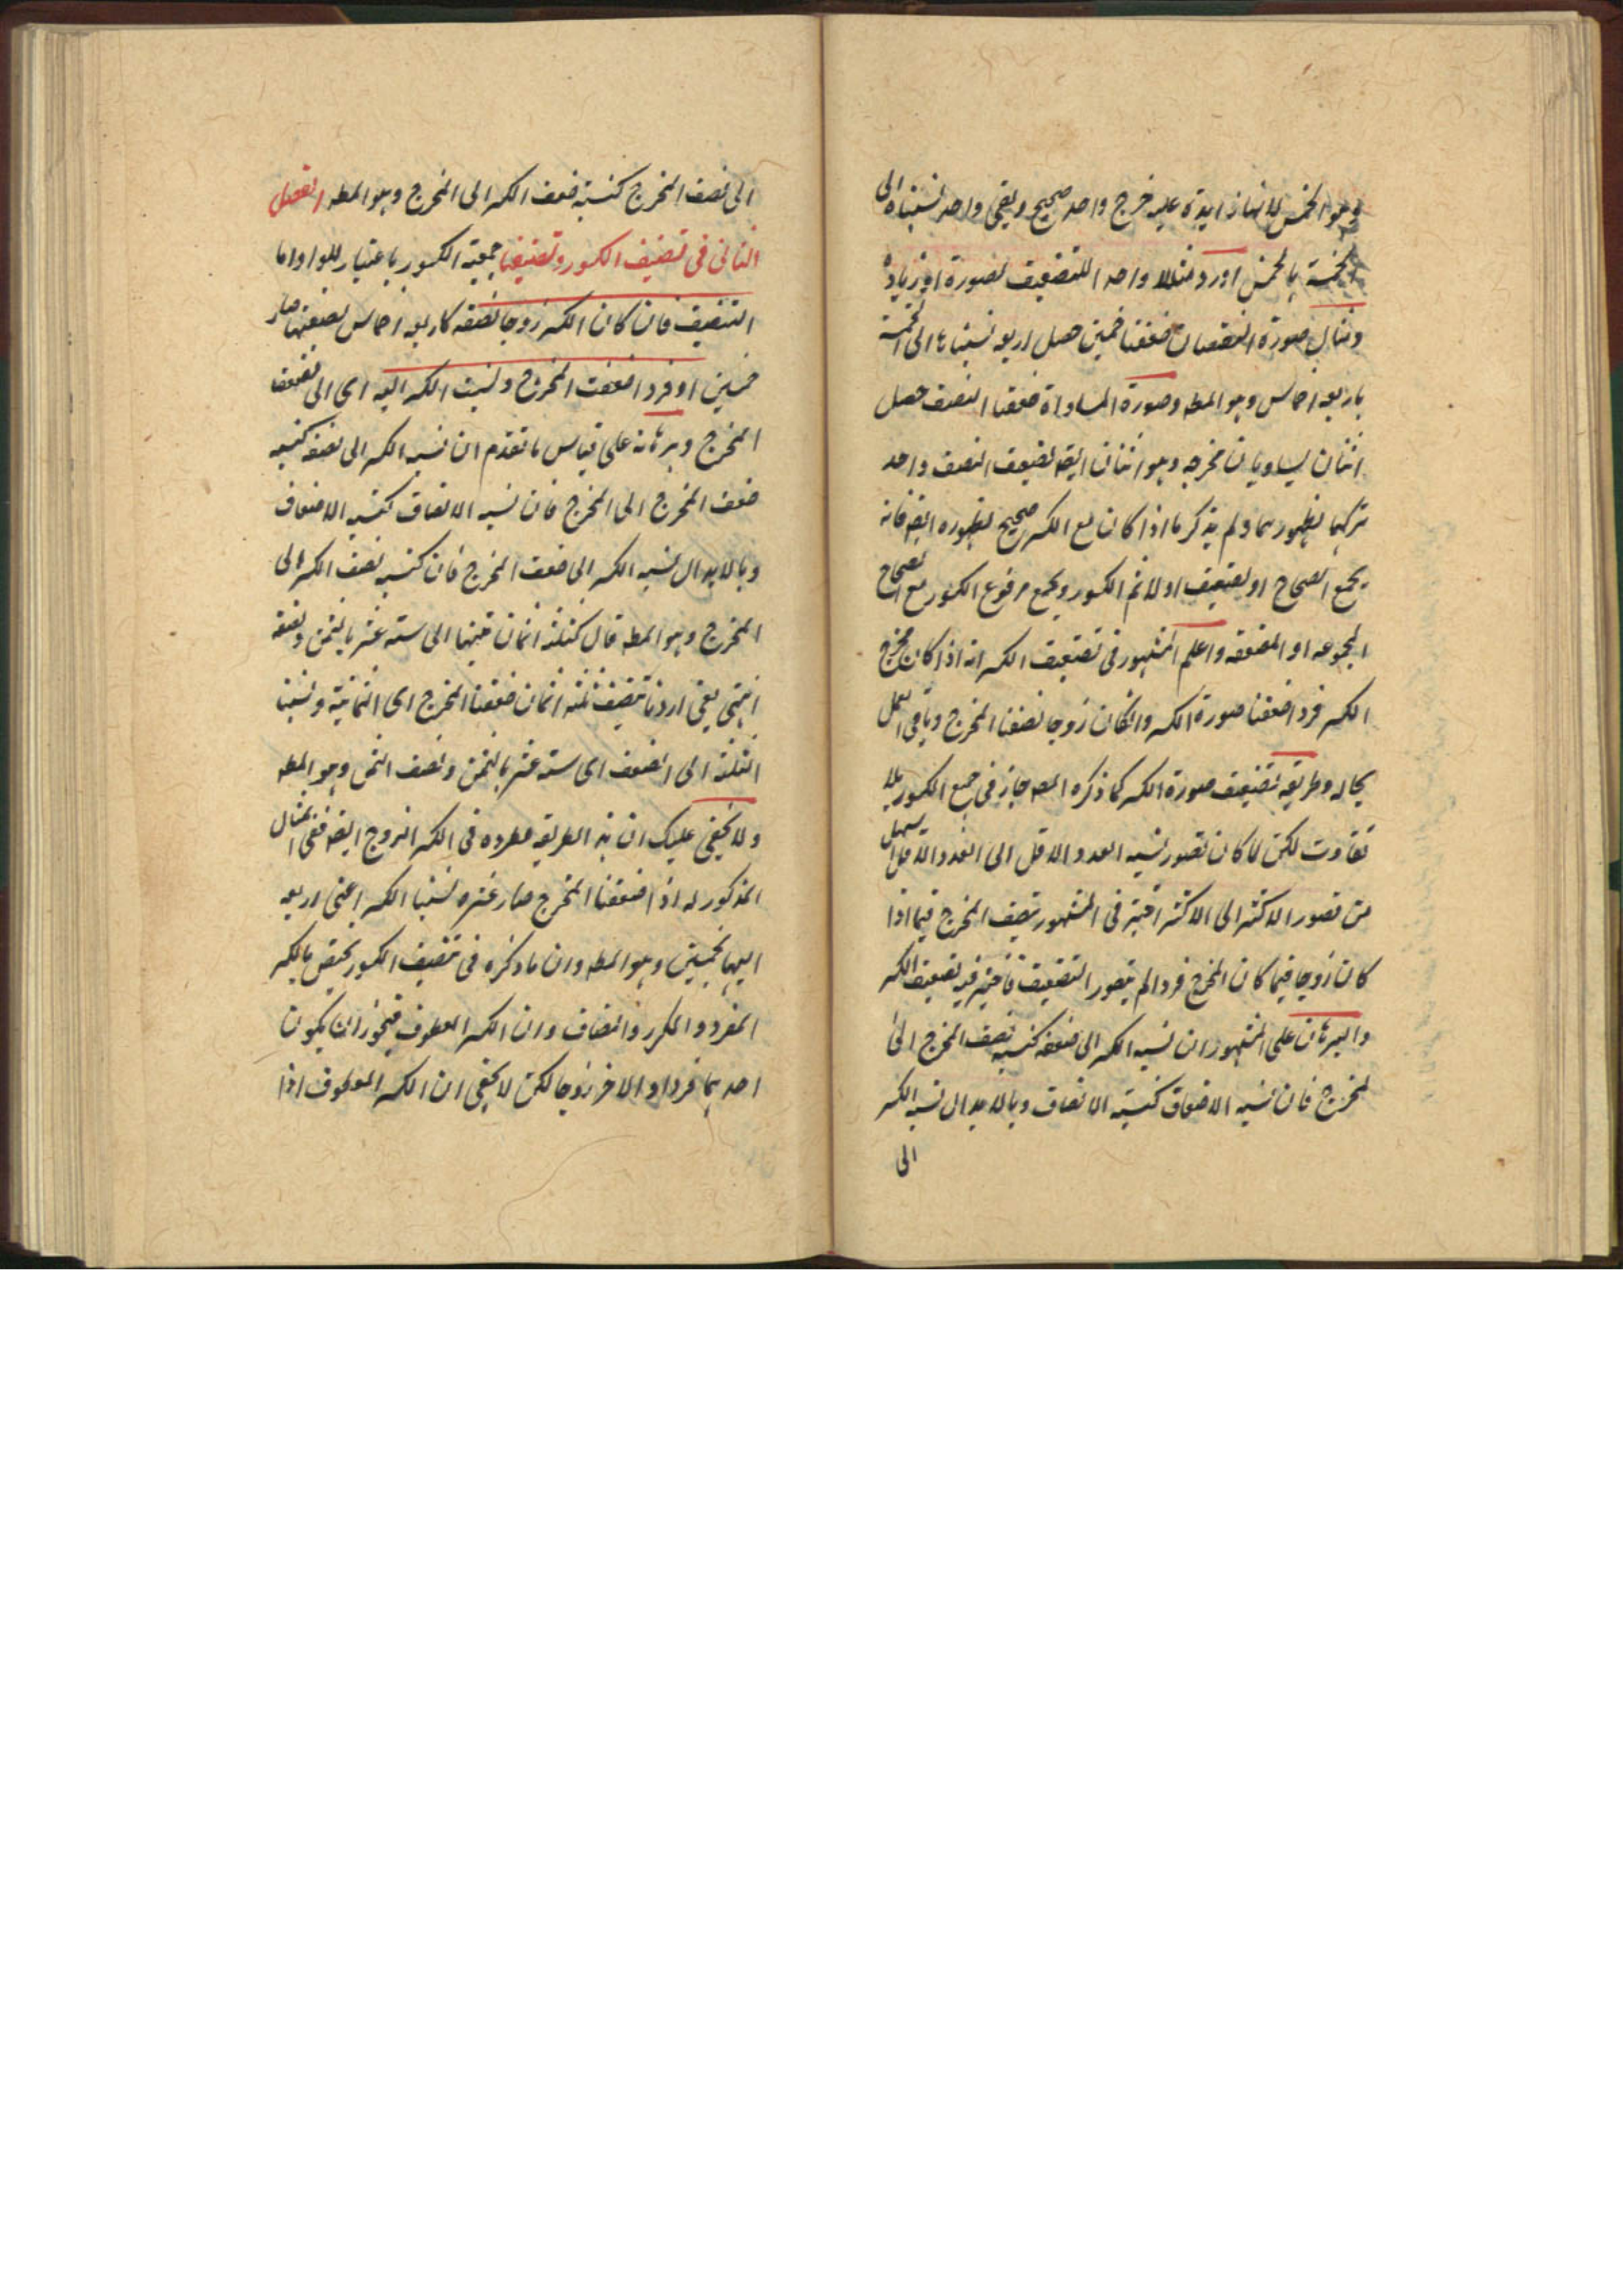 وهو الخمس لانها زايدة عليه خرج واحد صحيح وبقي واحد نسبناه الى
الخمسة بالخمس اورد مثلا واحد اللتضعيف لصورة او زيادة
ومثال صورة النقصان ضعفنا خمسين حصل اربعه نسبناها الى الخمسة
باربعه اخماس وهو المط وصورة المساواة ضعفنا النصف حصل
اثنان يساويان مخرجه وهو اثنان ايضا فضعف النصف واحد
تركهما لظهورهما ولم يذكر ما اذا كان مع الكسر صحيح لظهوره ايضا فانه
يجمع الصحاح او يضعف اولا ثم الكسور ويجمع مرفوع الكسور مع الصحاح
المجموعه او المضعفه واعلم المشهور في تضعيف الكسر انه اذا كان مخرج
الكسر فردا ضعفنا صورة الكسر وانكان زوجا نصفنا المخرج وباقي العمل
بحاله وطريقه تضعيف صورة الكسر كما ذكره المصـ جاز في جميع الكسور بلا
تفاوت لكن لما كان تصور نسبه العدد الاقل الى العدد الاقل اسهل
من تصور الاكثر الى الاكثر اعتبر في المشهور تنصيف المخرج فيما اذا
كان زوجا فيما كان المخرج فردا لم يتصور التنصيف فاعتبر فيه تضعيف الكسر
والبرهان على المشهور ان نسبه الكسر الى ضعفه كنسبه نصف المخرج الى
المخرج فان نسبه الاضعاف كنسبة الانصاف وبالابدال نسبه الكسر
الى
الى نصف المخرج كنسبة ضعف الكسر الى المخرج وهو المط الفصل
الثاني في تنصيف الكسور وتضعيفها جمعية الكسور باعتبار للواو اما
التنصيف فان كان الكسر زوجا نصفه كاربعه اخماس نصفتها صار
خمسين او فردا ضعفت المخرج ونسبت الكسر اليه اى الى ضعف
المخرج وبرهانه على قياس ما تقدم ان نسبه الكسر الى نصفه كنسبه
ضعف المخرج الى المخرج فان نسبه الانصاف كنسبه الاضعاف
وبالابدال نسبه الكسر الى ضعف المخرج فان كنسبه نصف الكسر الى
المخرج وهو المط قال كثلثة اثمان نسبتها الى سته عشر بالثمن ونصفه
انتهى يعني اردنا تنصيف ثلثه اثمان ضعفنا المخرج اى الثمانية ونسبنا
الثلثة الى الضعف اى سته عشر بالثمن ونصف الثمن وهو المط
ولا يخفى عليك ان هذ الطريقه مطرده في الكسر الزوج ايضا ففي المثال
المذكور له اذا ضعفنا المخرج صار عشره نسبنا الكسر اعني اربعه
اليها بخمسين وهو المط وان ما ذكره في تنصيف الكسور يختص بالكسر
المفرد والمكرر والمضاف وان الكسر المعطوف فيجوز ان يكون
احدهما فردا والاخر زوجا لكن لا يخفى ان الكسر المعطوف اذا